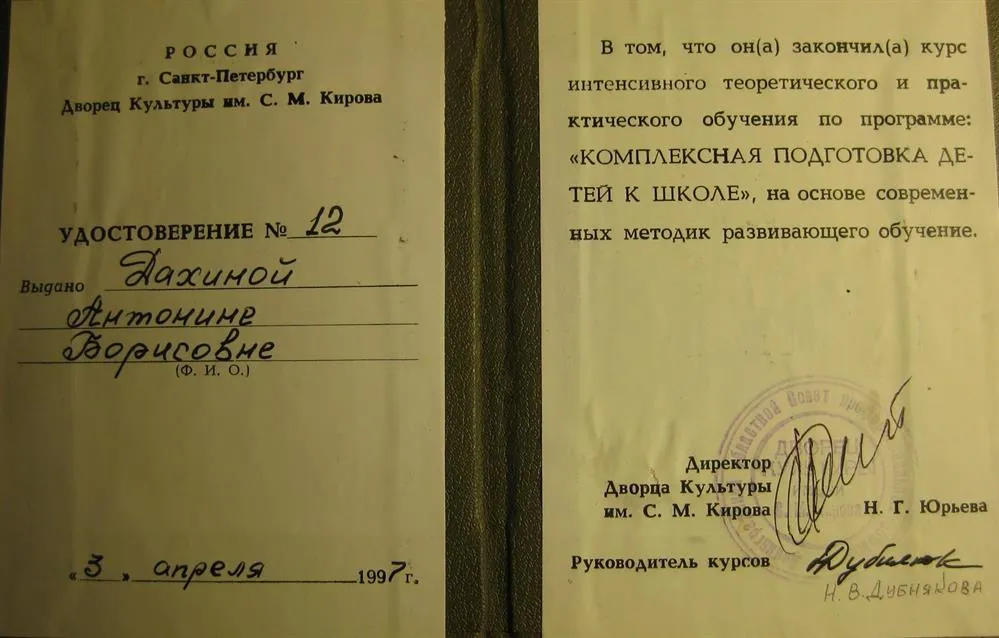 РОССИЯ
г. Санкт-Петербург
Дворец Культуры им. С. М. Кирова
УДОСТОВЕРЕНИЕ № 12
Выдано Дахиной
Антонине
Борисовне
(Ф. И. О.)
«3» апреля 1997 г.
В том, что он(а) закончил(а) курс
интенсивного теоретического и пра-
ктического обучения по программе:
«КОМПЛЕКСНАЯ ПОДГОТОВКА ДЕ-
ТЕЙ К ШКОЛЕ», на основе современ-
ных методик развивающего обучение.
Директор
Дворца Культуры
им. С. М. Кирова Н. Г. Юрьева
Руководитель курсов
Н. В. ДУБНЯКОВА